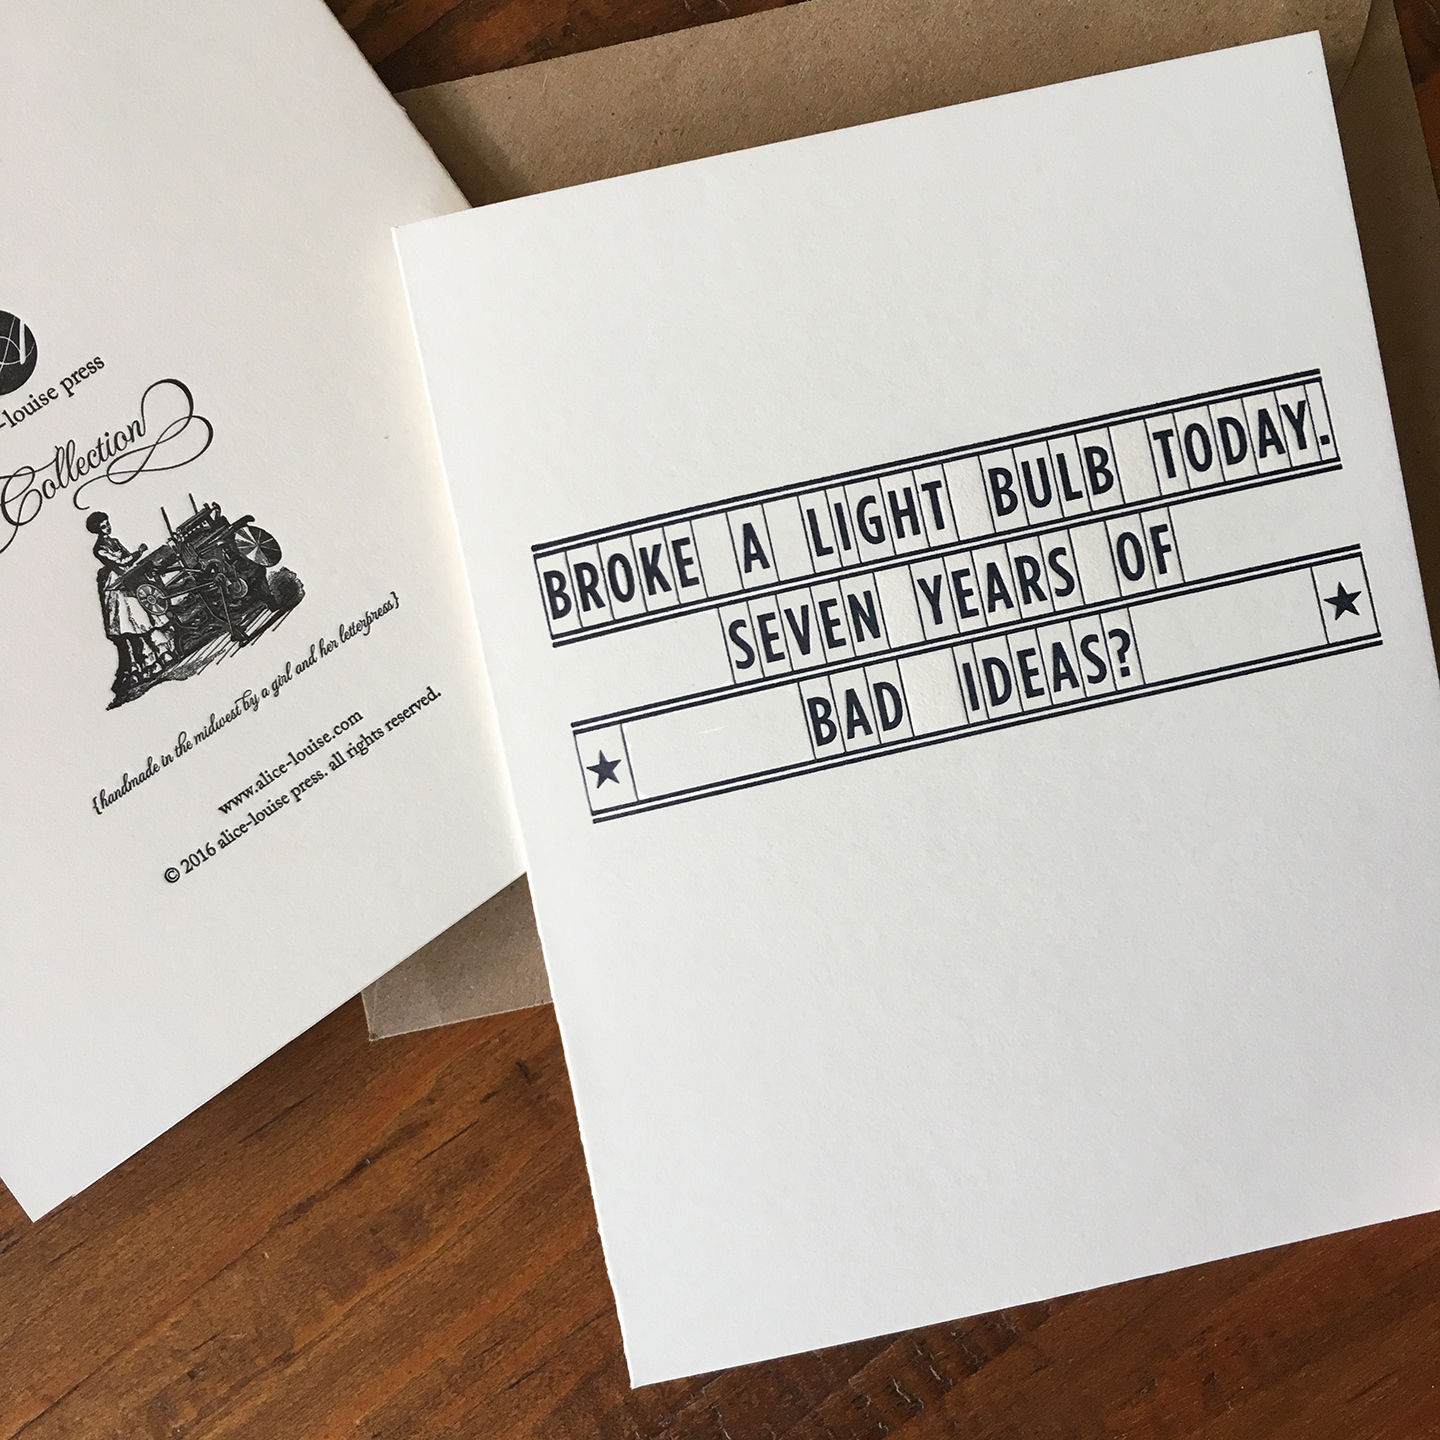 -louise press
Collection
{handmade in the midwest by a girl and her letterpress}
www.alice-louise.com
© 2016 alice-louise press. all rights reserved.
BROKE A LIGHT BULB TODAY.
SEVEN YEARS OF
BAD IDEAS?